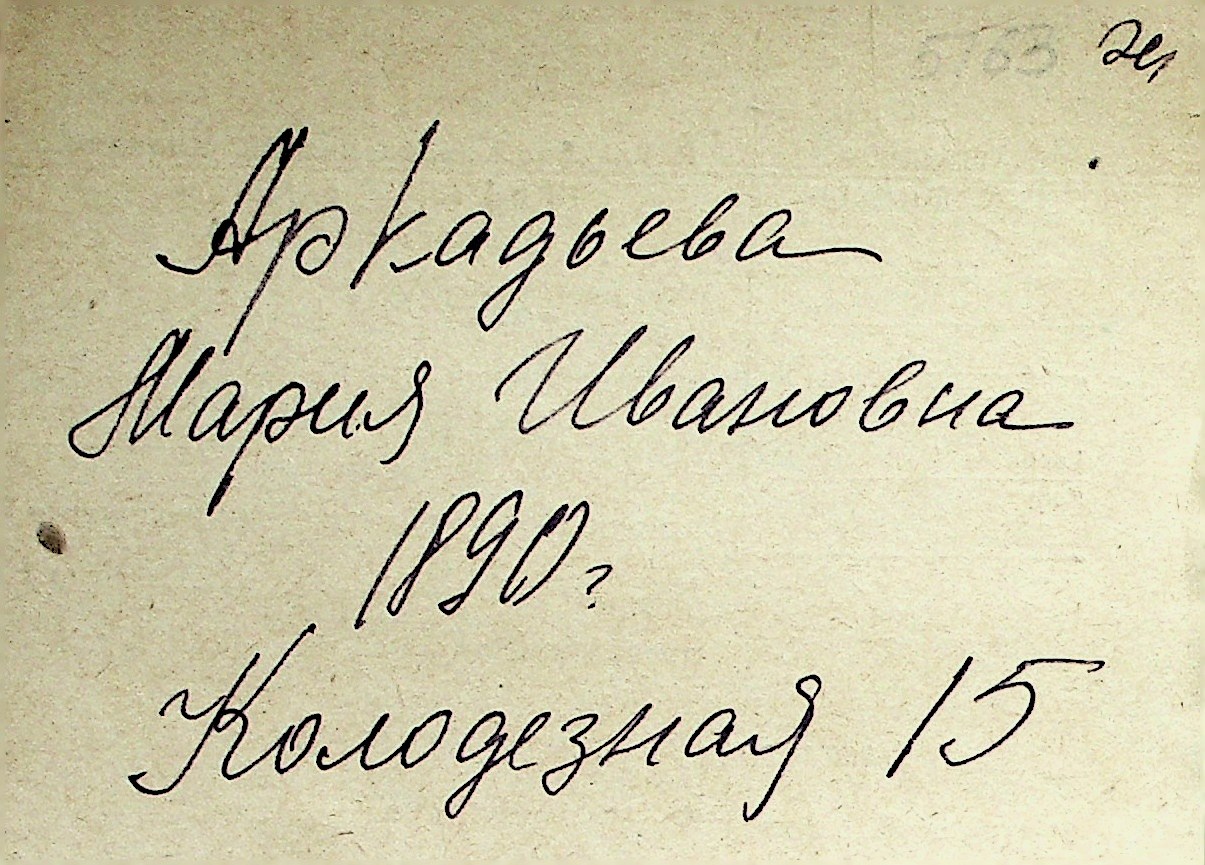 Аркадьева
Мария Ивановна
1890 г
Колодезная 15